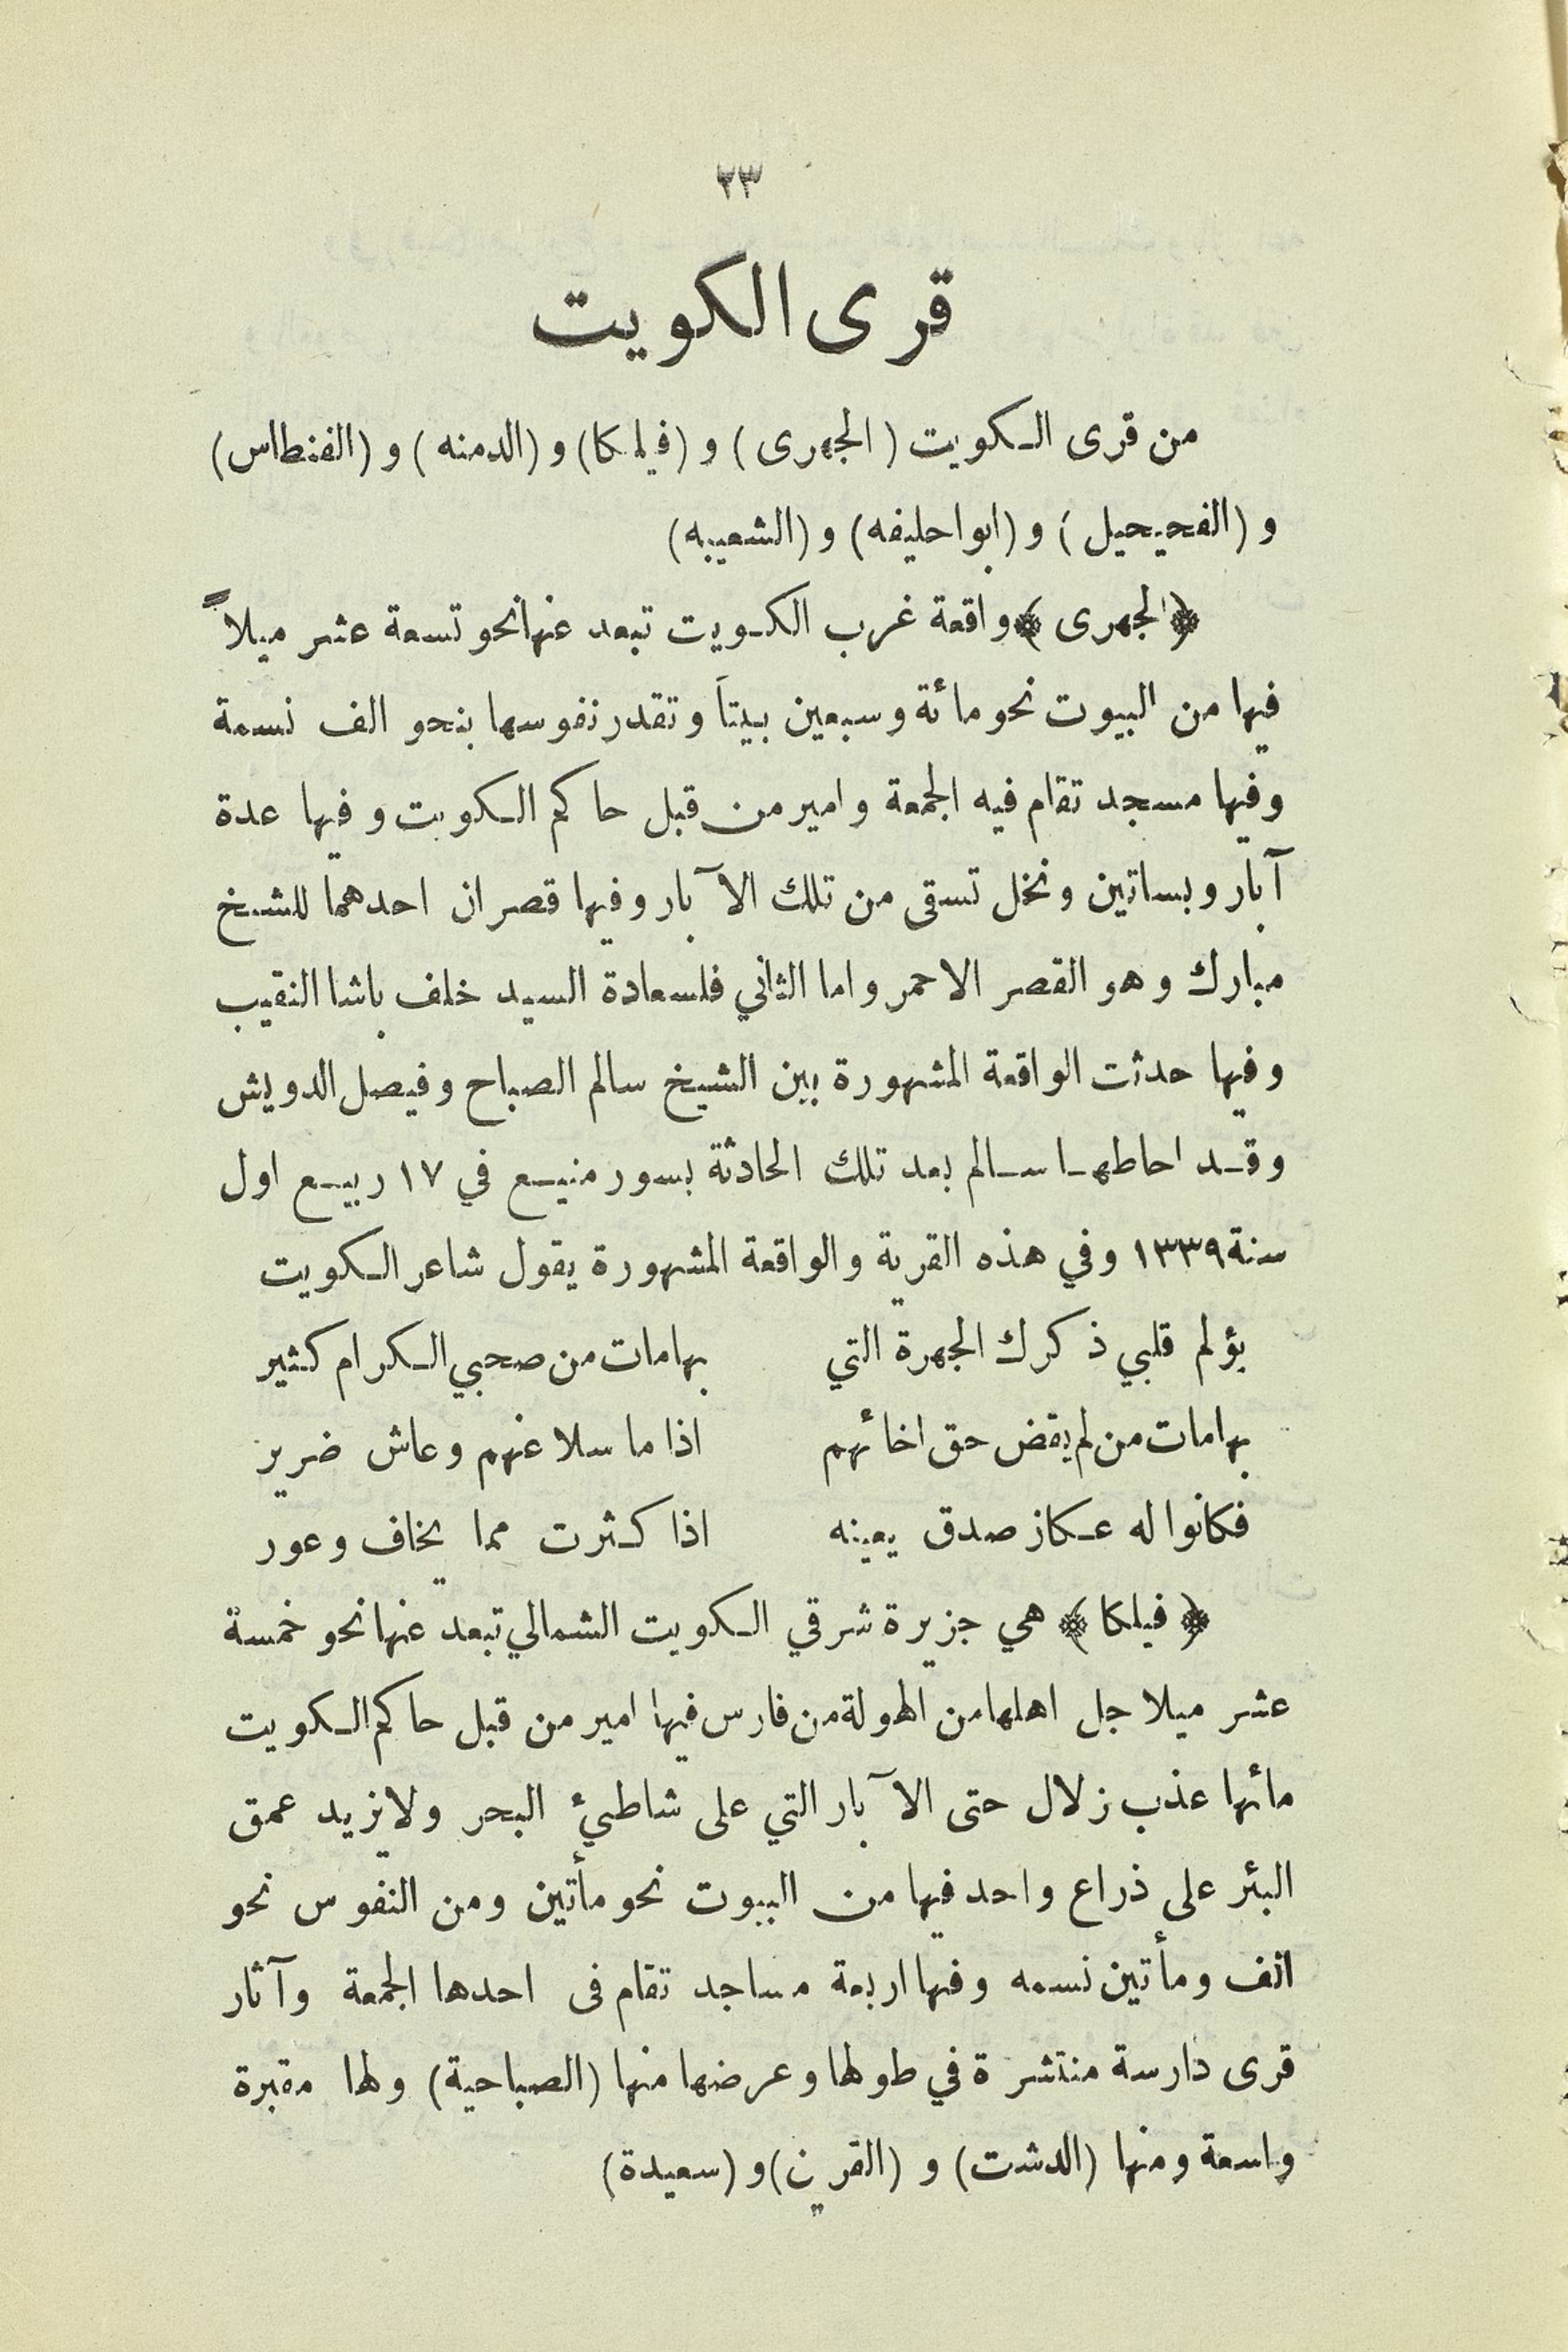 ٢٣
قرى الكويت
من قرى الكويت (الجهرى) و (فيلكا) و (الدمنه) و (الفنطاس)
و (الفحيحيل) و (ابواحليفه) و (الشعيبه)
﴿الجهرى﴾ واقعة غرب الكويت تبعد عنها نحو تسعة عشر ميلاً
فيها من البيوت نحو مائة وسبعين بيتاً وتقدر نفوسها بنحو الف نسمة
وفيها مسجد تقام فيه الجمعة وامير من قبل حاكم الكويت وفيها عدة
آبار وبساتين ونخل تسقى من تلك الآبار وفيها قصران احدهما للشيخ
مبارك وهو القصر الاحمر واما الثاني فلسعادة السيد خلف باشا النقيب
وفيها حدثت الواقعة المشهورة بين الشيخ سالم الصباح وفيصل الدويش
وقد احاطها سالم بعد تلك الحادثة بسور منيع في ١٧ ربيع اول
سنة ١٣٣٩ وفي هذه القرية والواقعة المشهورة يقول شاعر الكويت
يؤلم قلبي ذكرك الجهرة التي بها مات من صحبي الكرام كثير
بها مات من لم يقض حق اخائهم اذا ما سلا عنهم وعاش ضرير
فكانوا له عكاز صدق يعينه اذا كثرت مما يخاف وعور
﴿فيلكا﴾ هي جزيرة شرقي الكويت الشمالي تبعد عنها نحو خمسة
عشر ميلا جل اهلها من الهولة من فارس فيها امير من قبل حاكم الكويت
مائها عذب زلال حتى الآبار التي على شاطئ البحر ولايزيد عمق
البئر على ذراع واحد فيها من البيوت نحو مأتين ومن النفوس نحو
الف ومأتين نسمه وفيها اربعة مساجد تقام فى احدها الجمعة وآثار
قرى دارسة منتشرة في طولها وعرضها منها (الصباحية) ولها مقبرة
واسعة ومنها (الدشت) و (القرين) و (سعيدة)